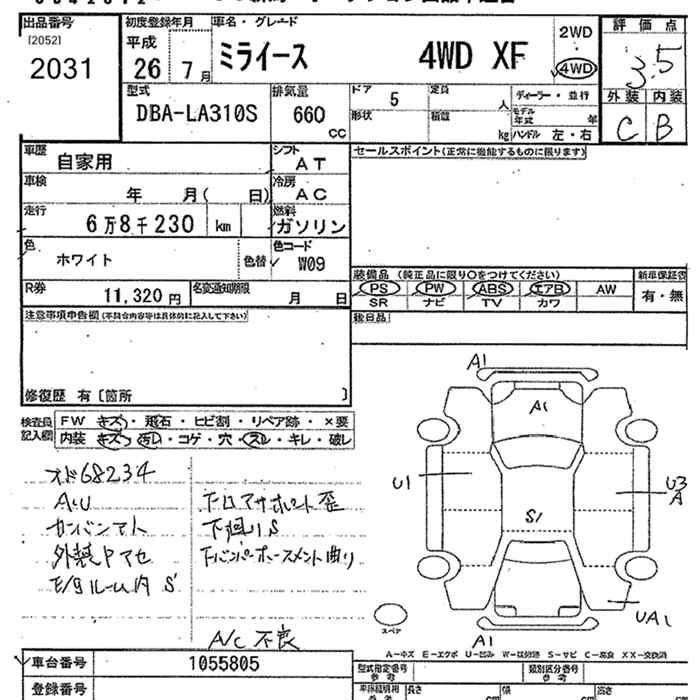 出品番号 初度登録年月 車名・グレード 評価点
[2052] 平成 2WD
2031 26 7月 ミライース 4WD XF 4WD 3.5
型式 排気量 ドア 定員 ディーラー・並行 外装 内装
DBA-LA310S 660 CC 5 人 モデル年式 年 C B
形状 積載 kg ハンドル 左・右
車歴 自家用 シフト AT セールスポイント(正常に機能するものに限ります)
車検 年 月( 日) 冷房 AC
走行 6万8千230 km 燃料 ガソリン
色 ホワイト 色替 色コード W09
装備品 (純正品に限り○をつけてください) 新車保証書
R券 11,320円 名変通知期限 月 日 PS PW ABS エアB AW 有・無
SR ナビ TV カワ
注意事項申告欄(不具合内容等は具体的に記入して下さい) 後日品
修復歴 有〔箇所 〕
検査員記入欄 FW キズ・飛石・ヒビ割・リペア跡・×要
内装 キズ・汚し・コゲ・穴・スレ・キレ・破レ
オド68234
AAU
下廻リS
E/gルーム内 S
A/C 不良
A1
A1
U1
U3
A
S1
UA1
スペア
A1
A-キズ E-エクボ U-凹み W-波 S-サビ C-腐食 XX-交換済
車台番号 1055805 型式指定番号 参考 類別区分番号 参考
登録番号 長さ cm 幅 cm 高さ cm